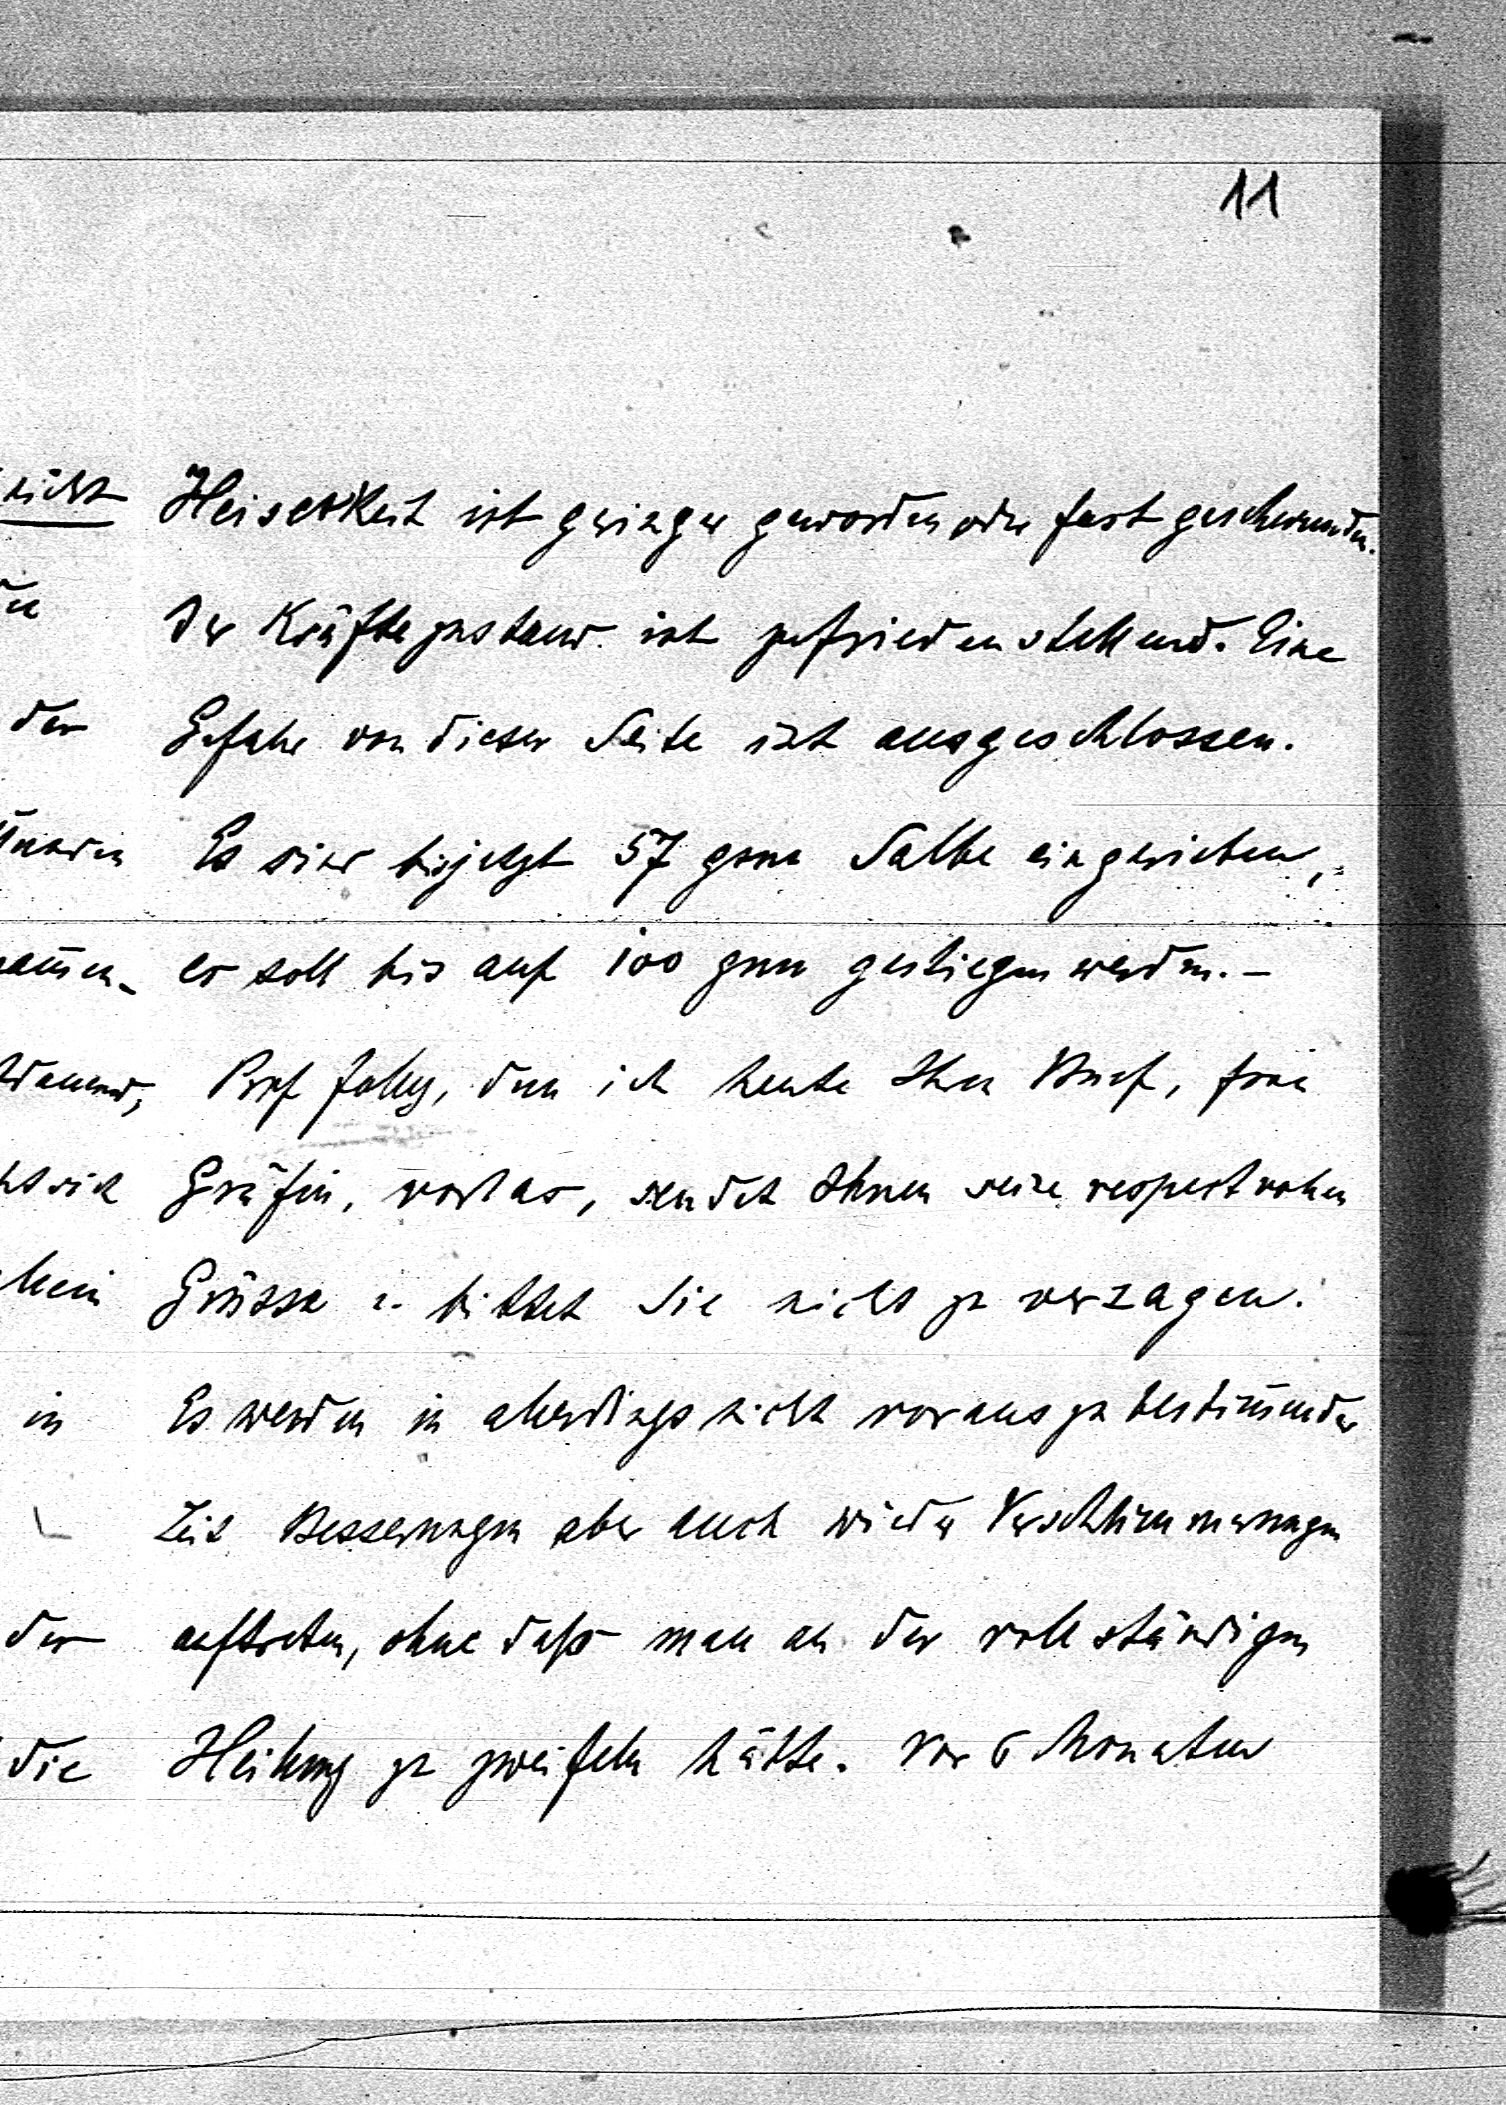 11
Heiserkeit ist geringer geworden oder fast geschwunden.
Der Kräftezustand ist zufriedenstellend. Eine
Gefahr von dieser Seite ist ausgeschlossen.
Es sind bisjetzt 57 grm Salbe eingerieben,
es soll bis auf 100 grm gestiegen werden. –
Prof Jolly, dem ich heute Ihren Brief, Frau
Gräfin, vorlas, sendet Ihnen seine respectvollen
Grüsse u. bittet Sie nicht zu verzagen.
Es werden in allerdings nicht voraus zu bestim̅ender
Zeit Besserungen aber auch wieder Verschlimmerungen
auftreten, ohne daß man an der vollständigen
Heilung zu zweifeln hätte. Vor 6 Monaten
nicht
der
in
der
die